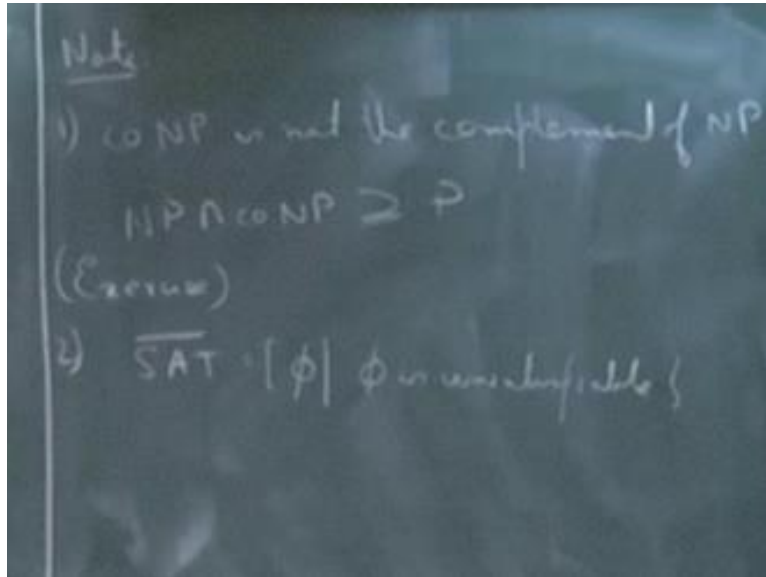 Note
1) coNP is not the complement of NP
NP ∩ coNP ⊇ P
(Exercise)
2) \overline{SAT} = { ϕ | ϕ is unsatisfiable }